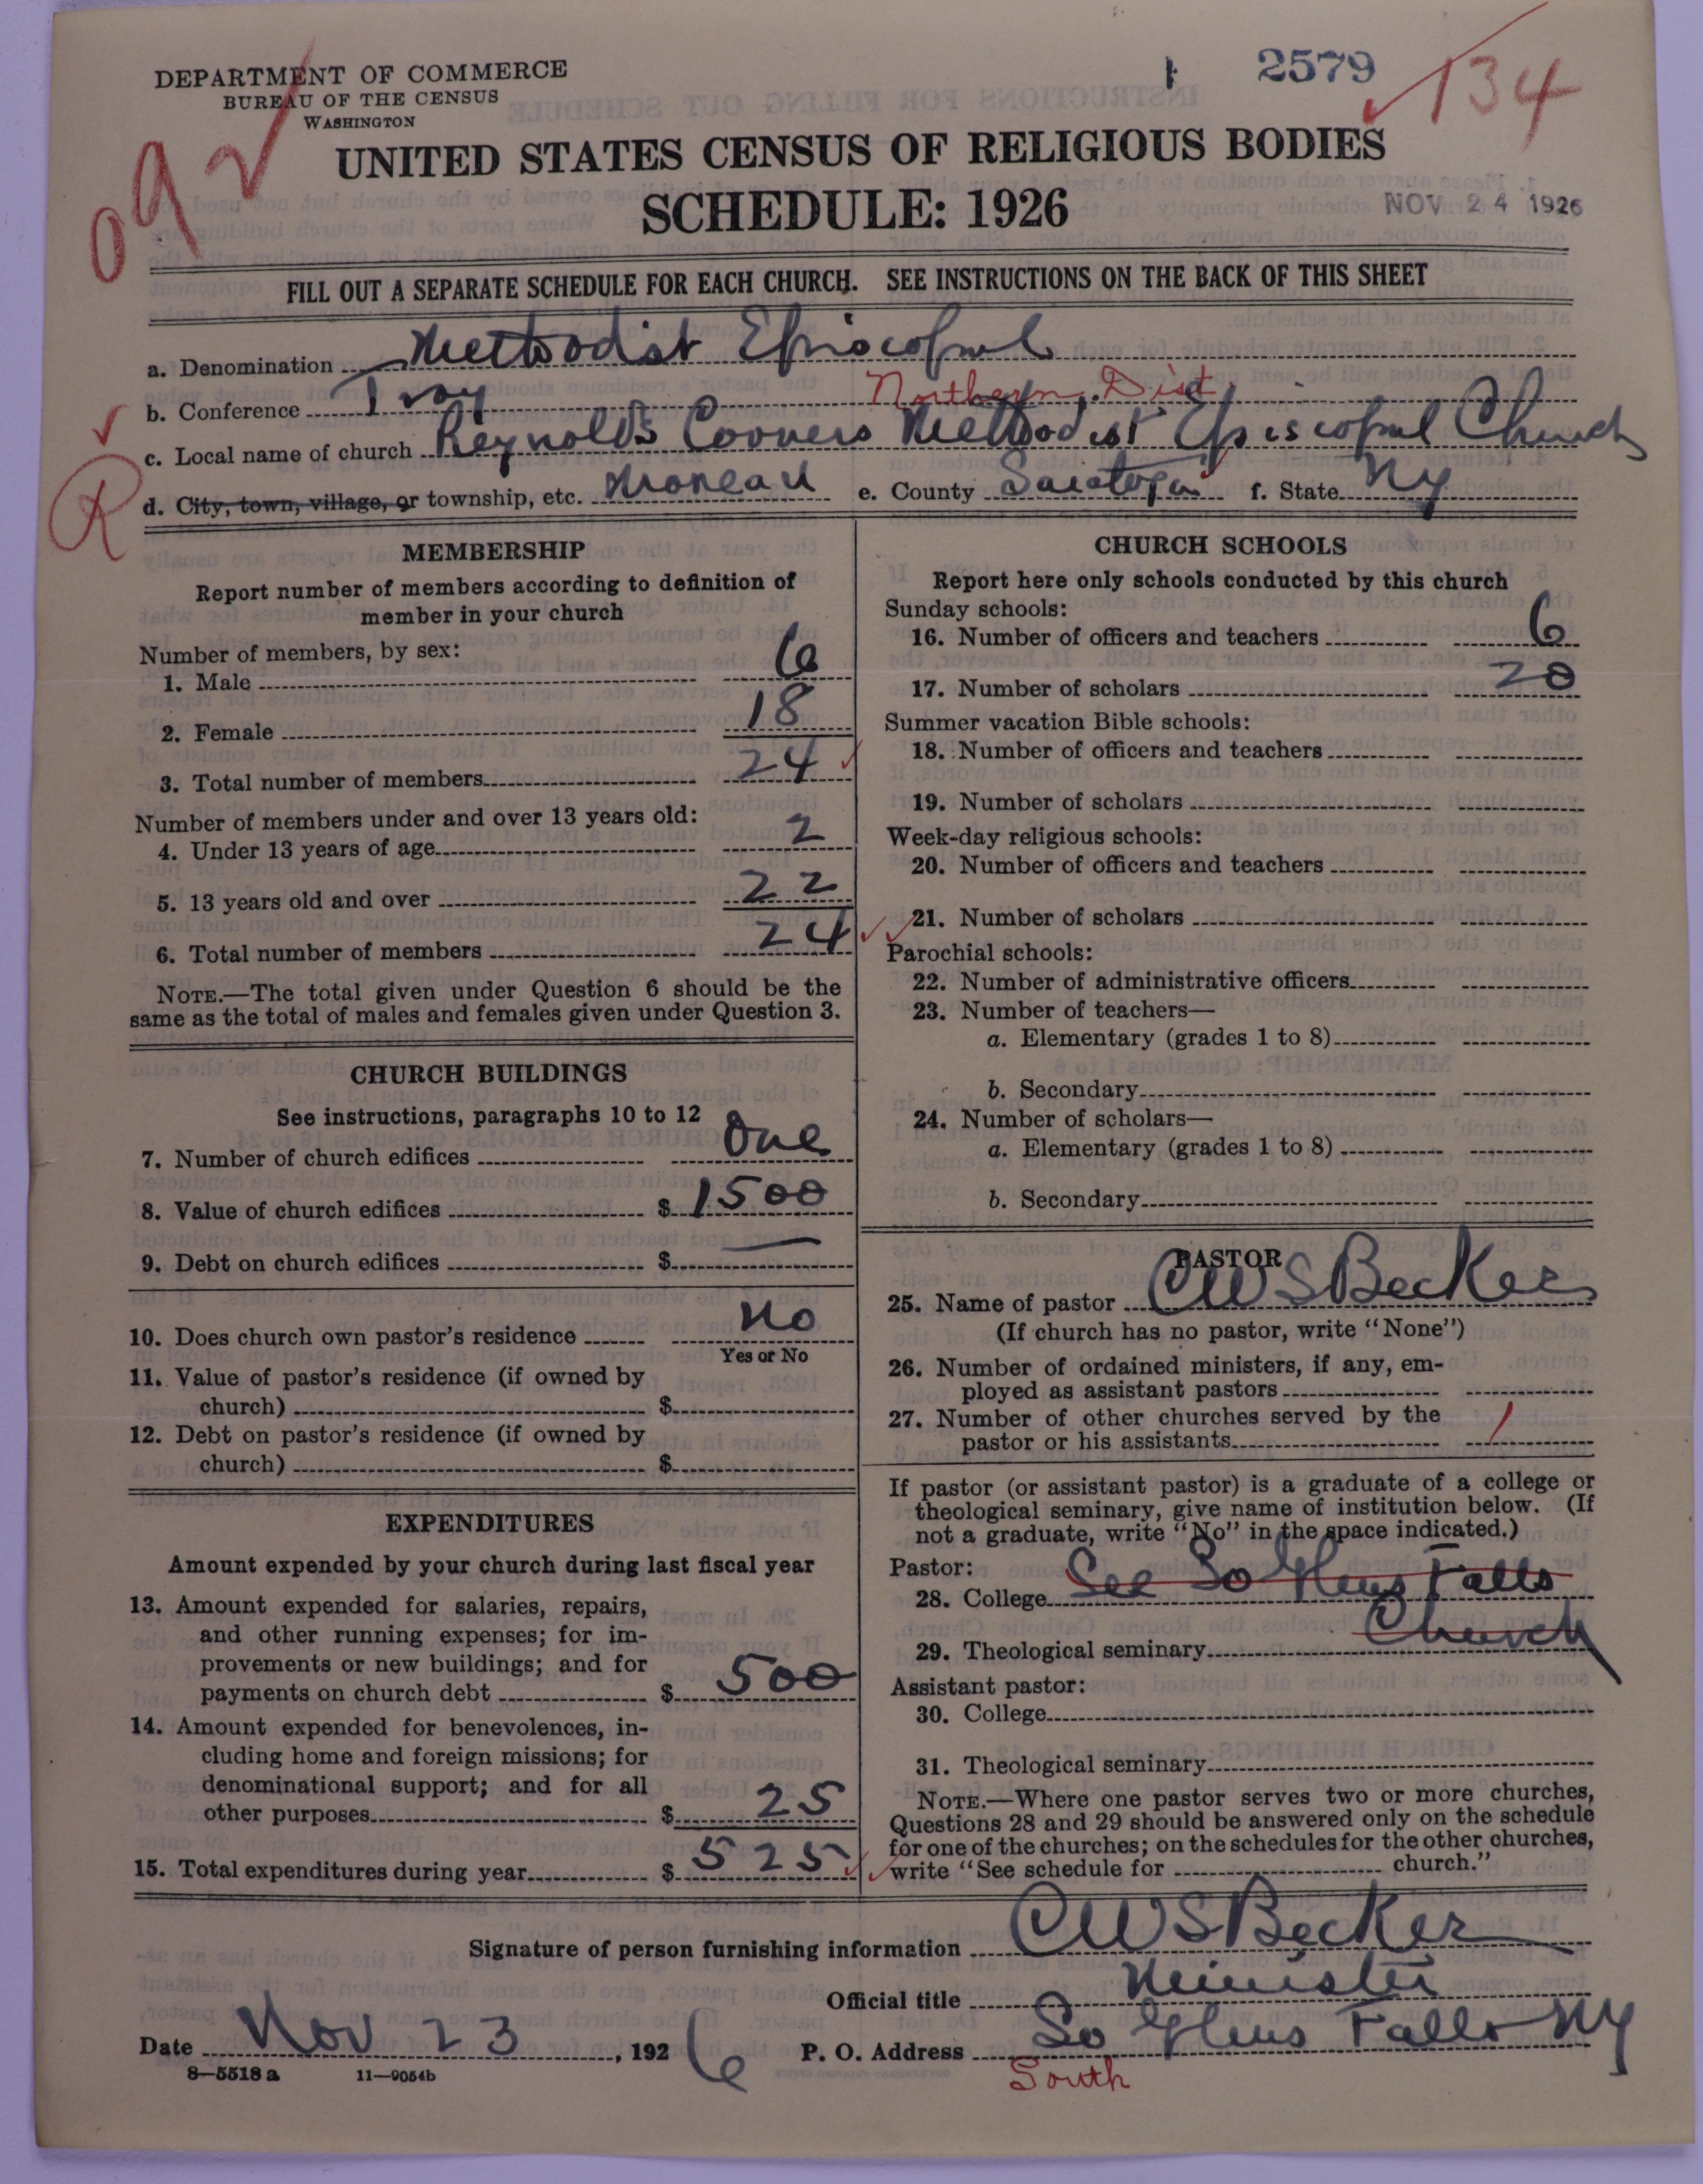 DEPARTMENT OF COMMERCE
BUREAU OF THE CENSUS
WASHINGTON
2579
134
092
UNITED STATES CENSUS OF RELIGIOUS BODIES
SCHEDULE: 1926
NOV 24 1926
FILL OUT A SEPARATE SCHEDULE FOR EACH CHURCH. SEE INSTRUCTIONS ON THE BACK OF THIS SHEET
a. Denomination Methodist Episcopal
b. Conference Troy Northern Dist
c. Local name of church Reynolds Corners Methodist Episcopal Church
R
d. City, town, village, or township, etc. Moreau e. County Saratoga f. State NY
MEMBERSHIP
Report number of members according to definition of
member in your church
Number of members, by sex:
1. Male 6
2. Female 18
3. Total number of members 24
Number of members under and over 13 years old:
4. Under 13 years of age 2
5. 13 years old and over 22
6. Total number of members 24
NOTE.—The total given under Question 6 should be the
same as the total of males and females given under Question 3.
CHURCH BUILDINGS
See instructions, paragraphs 10 to 12
7. Number of church edifices One
8. Value of church edifices $ 1500
9. Debt on church edifices $ —
10. Does church own pastor's residence No
Yes or No
11. Value of pastor's residence (if owned by
church) $
12. Debt on pastor's residence (if owned by
church) $
EXPENDITURES
Amount expended by your church during last fiscal year
13. Amount expended for salaries, repairs,
and other running expenses; for im-
provements or new buildings; and for
payments on church debt $ 500
14. Amount expended for benevolences, in-
cluding home and foreign missions; for
denominational support; and for all
other purposes $ 25
15. Total expenditures during year $ 525
CHURCH SCHOOLS
Report here only schools conducted by this church
Sunday schools:
16. Number of officers and teachers 6
17. Number of scholars 20
Summer vacation Bible schools:
18. Number of officers and teachers
19. Number of scholars
Week-day religious schools:
20. Number of officers and teachers
21. Number of scholars
Parochial schools:
22. Number of administrative officers
23. Number of teachers—
a. Elementary (grades 1 to 8)
b. Secondary
24. Number of scholars—
a. Elementary (grades 1 to 8)
b. Secondary
PASTOR
25. Name of pastor CWS Becker
(If church has no pastor, write "None")
26. Number of ordained ministers, if any, em-
ployed as assistant pastors
27. Number of other churches served by the
pastor or his assistants 1
If pastor (or assistant pastor) is a graduate of a college or
theological seminary, give name of institution below. (If
not a graduate, write "No" in the space indicated.)
Pastor:
28. College See So Glens Falls
Church
29. Theological seminary
Assistant pastor:
30. College
31. Theological seminary
NOTE.—Where one pastor serves two or more churches,
Questions 28 and 29 should be answered only on the schedule
for one of the churches; on the schedules for the other churches,
write "See schedule for church."
Signature of person furnishing information CWS Becker
Official title Minister
Date Nov 23, 1926 P. O. Address So Glens Falls NY
South
8—5518 a 11—9054b